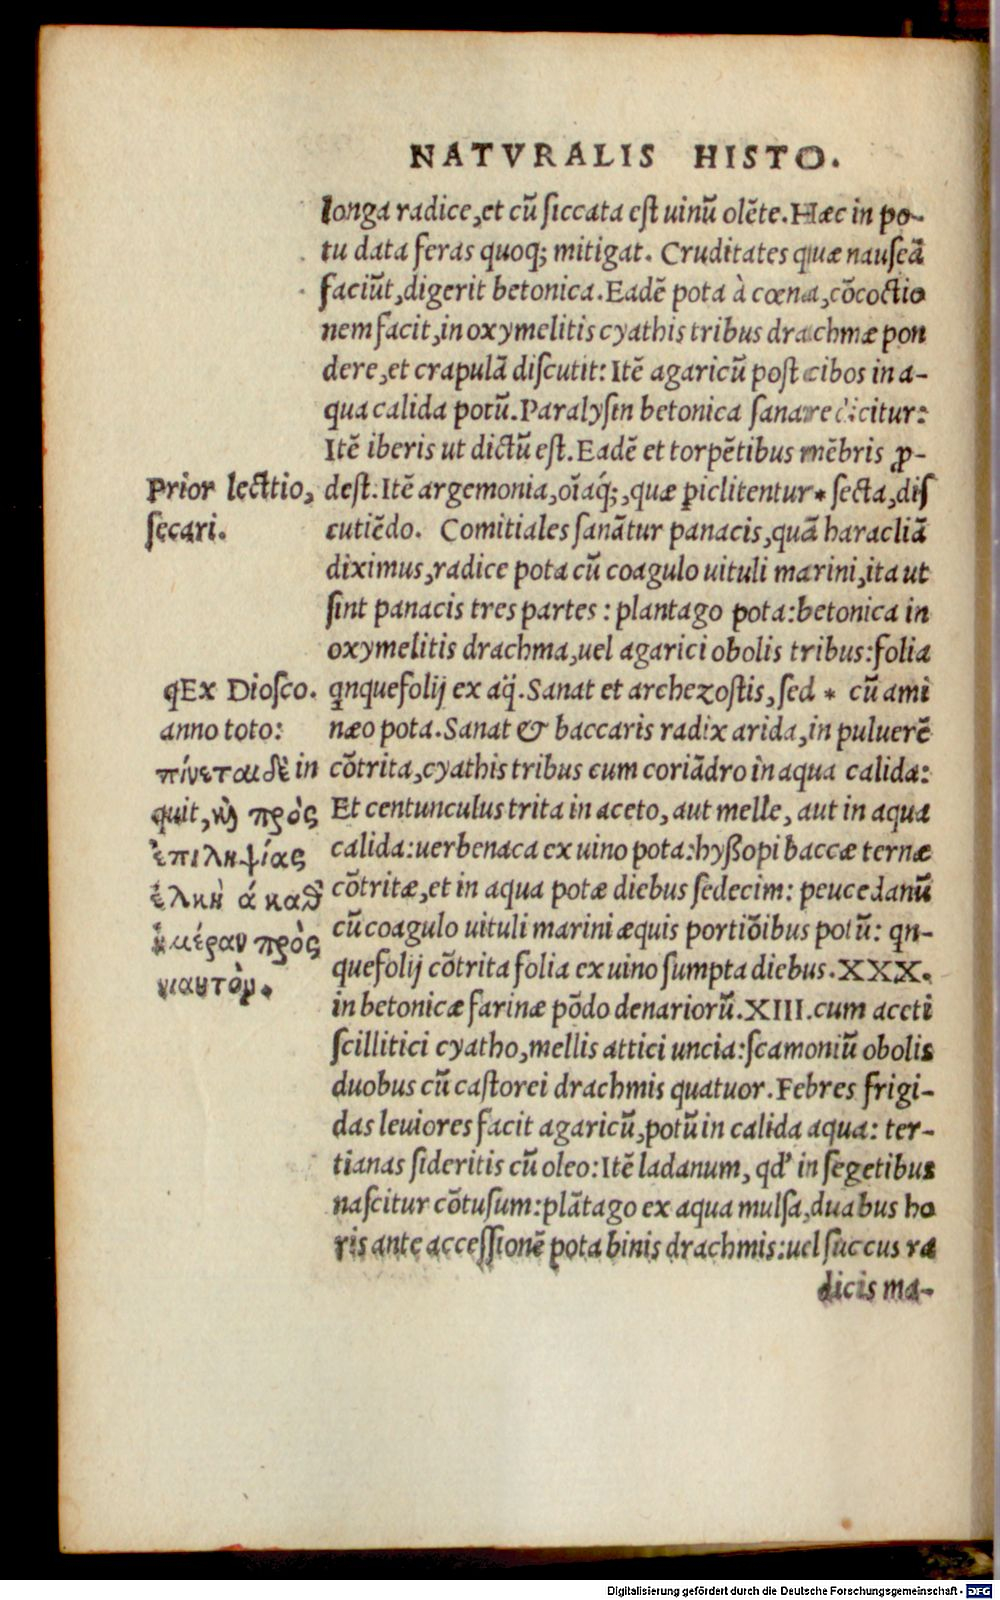 NATVRALIS HISTO.
longa radice, et cũ siccata est uinũ olẽte. Hæc in po-
tu data feras quoq; mitigat. Cruditates quæ nauseã
faciũt, digerit betonica. Eadẽ pota à cœna, cõcoctio
nem facit, in oxymelitis cyathis tribus drachmæ pon
dere, et crapulã discutit: Itẽ agaricũ post cibos in a-
qua calida potũ. Paralysin betonica sanare dicitur:
Itẽ iberis ut dictũ est. Eadẽ et torpẽtibus mẽbris ꝓ-
dest. Itẽ argemonia, oĩaq́;, quæ ꝑiclitentur * secta, dis
cutiẽdo. Comitiales sanãtur panacis, quã haracliã
diximus, radice pota cũ coagulo uituli marini, ita ut
sint panacis tres partes : plantago pota: betonica in
oxymelitis drachma, uel agarici obolis tribus: folia
q̃nquefolij ex aq̃. Sanat et archezostis, sed * cũ ami
næo pota. Sanat & baccaris radix arida, in puluerẽ
cõtrita, cyathis tribus cum coriãdro in aqua calida:
Et centunculus trita in aceto, aut melle, aut in aqua
calida: uerbenaca ex uino pota: hyßopi baccæ ternæ
cõtritæ, et in aqua potæ diebus sedecim: peucedanũ
cũ coagulo uituli marini æquis portiõibus potũ: qn-
quefolij cõtrita folia ex uino sumpta diebus. XXX.
in betonicæ farinæ põdo denariorũ. XIII. cum aceti
scillitici cyatho, mellis attici uncia: scamoniũ obolis
duobus cũ castorei drachmis quatuor. Febres frigi-
das leuiores facit agaricũ, potũ in calida aqua: ter-
tianas sideritis cũ oleo: Itẽ ladanum, qd' in segetibus
nascitur cõtusum: plãtago ex aqua mulsa, duabus ho
ris ante accessionẽ pota binis drachmis: uel succus ra
dicis ma-
Prior lectio,
secari.
qEx Diosco.
anno toto:
πίνεται δὲ in
quit, ϗ πρὸς
ἐπιληψίας
ὁλκὴ ά καθ'
ἡμέραν πρὸς
νιαυτὸν.
Digitalisierung gefördert durch die Deutsche Forschungsgemeinschaft - DFG